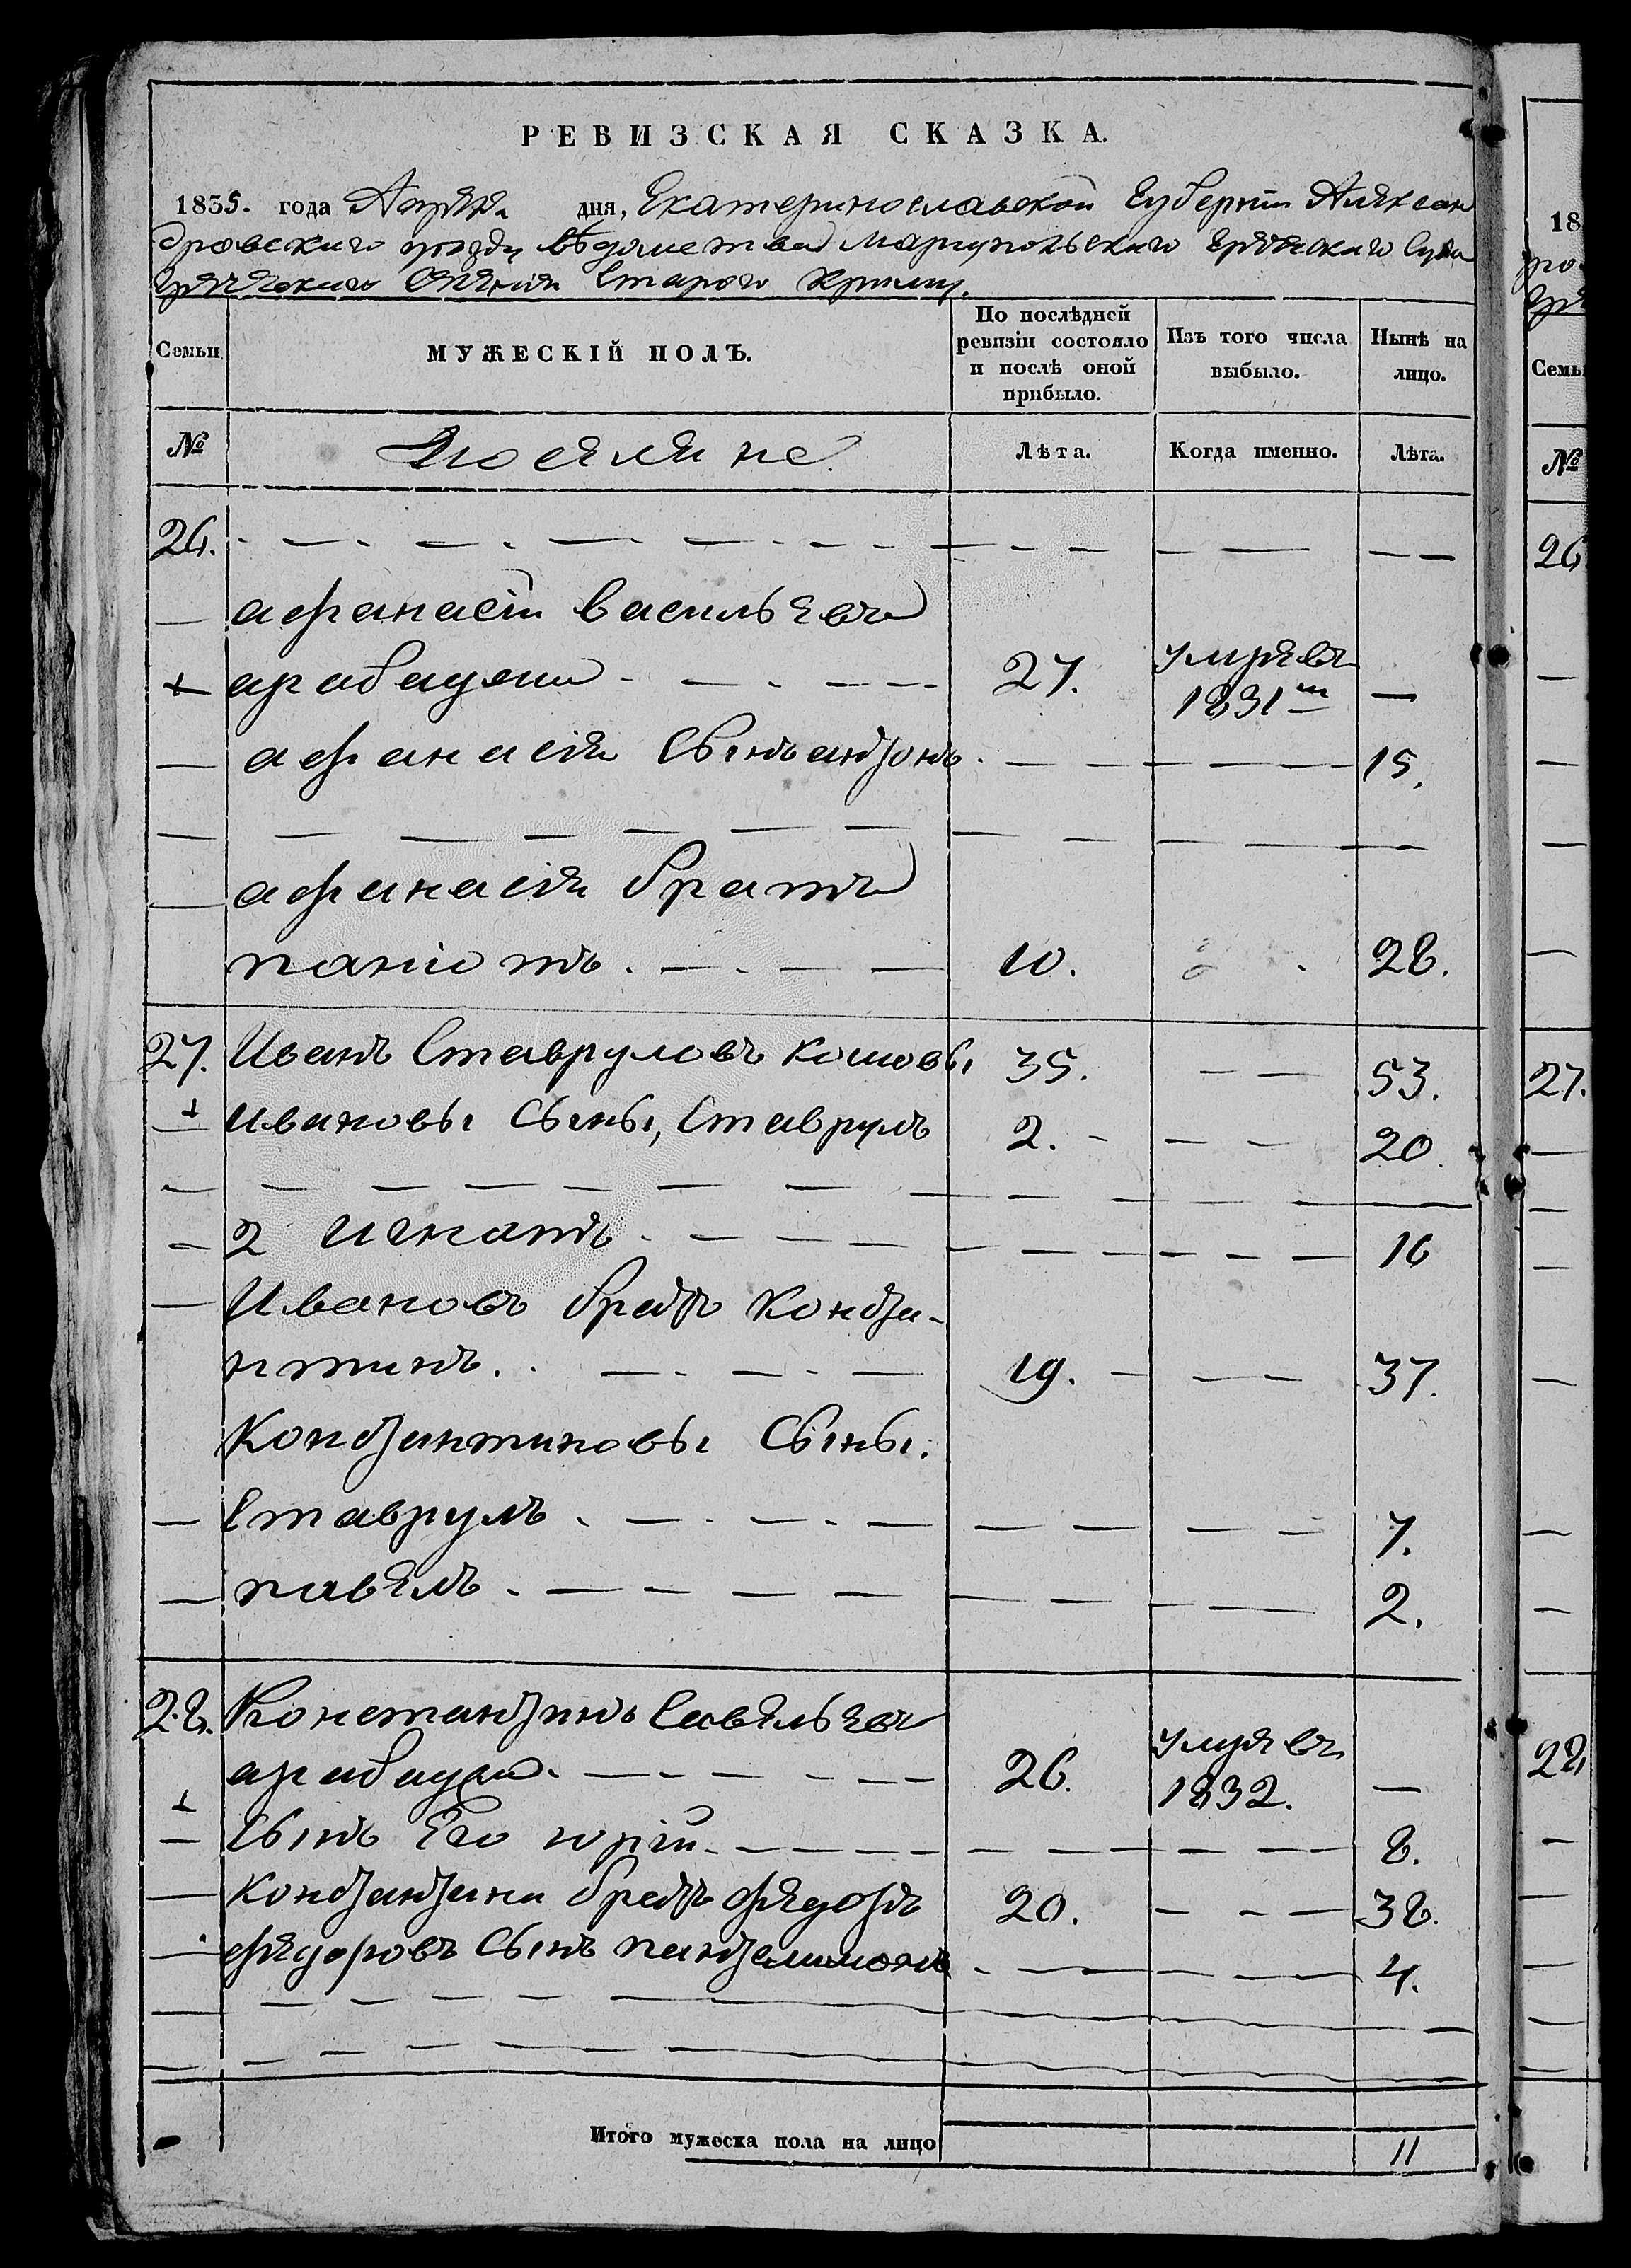 РЕВИЗСКАЯ СКАЗКА.
1835. года Апреля дня, Екатеринославской Губернии Алексан
дровского уезду ведомства Мариупольского греческого Суда
греческого Селения Старого Крыму.
Семьи
МУЖЕСКІЙ ПОЛЪ.
По послѣдней ревизіи состояло и послѣ оной прибыло.
Изъ того числа выбыло.
Нынѣ на лицо.
№
Поселяне
Лѣта.
Когда именно.
Лѣта.
26.
афанасій васильевъ
27. умре въ 1831м —
афанасія Сынъ антонъ 15.
афанасія братъ
паніотъ. 10. 28.
27. Иванъ Ставруловъ 35. 53.
Ивановы Сыны, Ставрулъ 2. 20.
2 игнатъ 16
Ивановъ братъ Конста-
нтинъ. 19. 37.
Константиновы Сыны.
Ставрулъ 7.
павелъ 2.
28. Константинъ Савельевъ
26. умре въ 1832. —
Сынъ Его юрій 8.
Константина братъ федоръ 20. 38.
федоровъ Сынъ пантелимонъ 4.
Итого мужеска пола на лицо 11
18
26
27.
28
Семьи
№